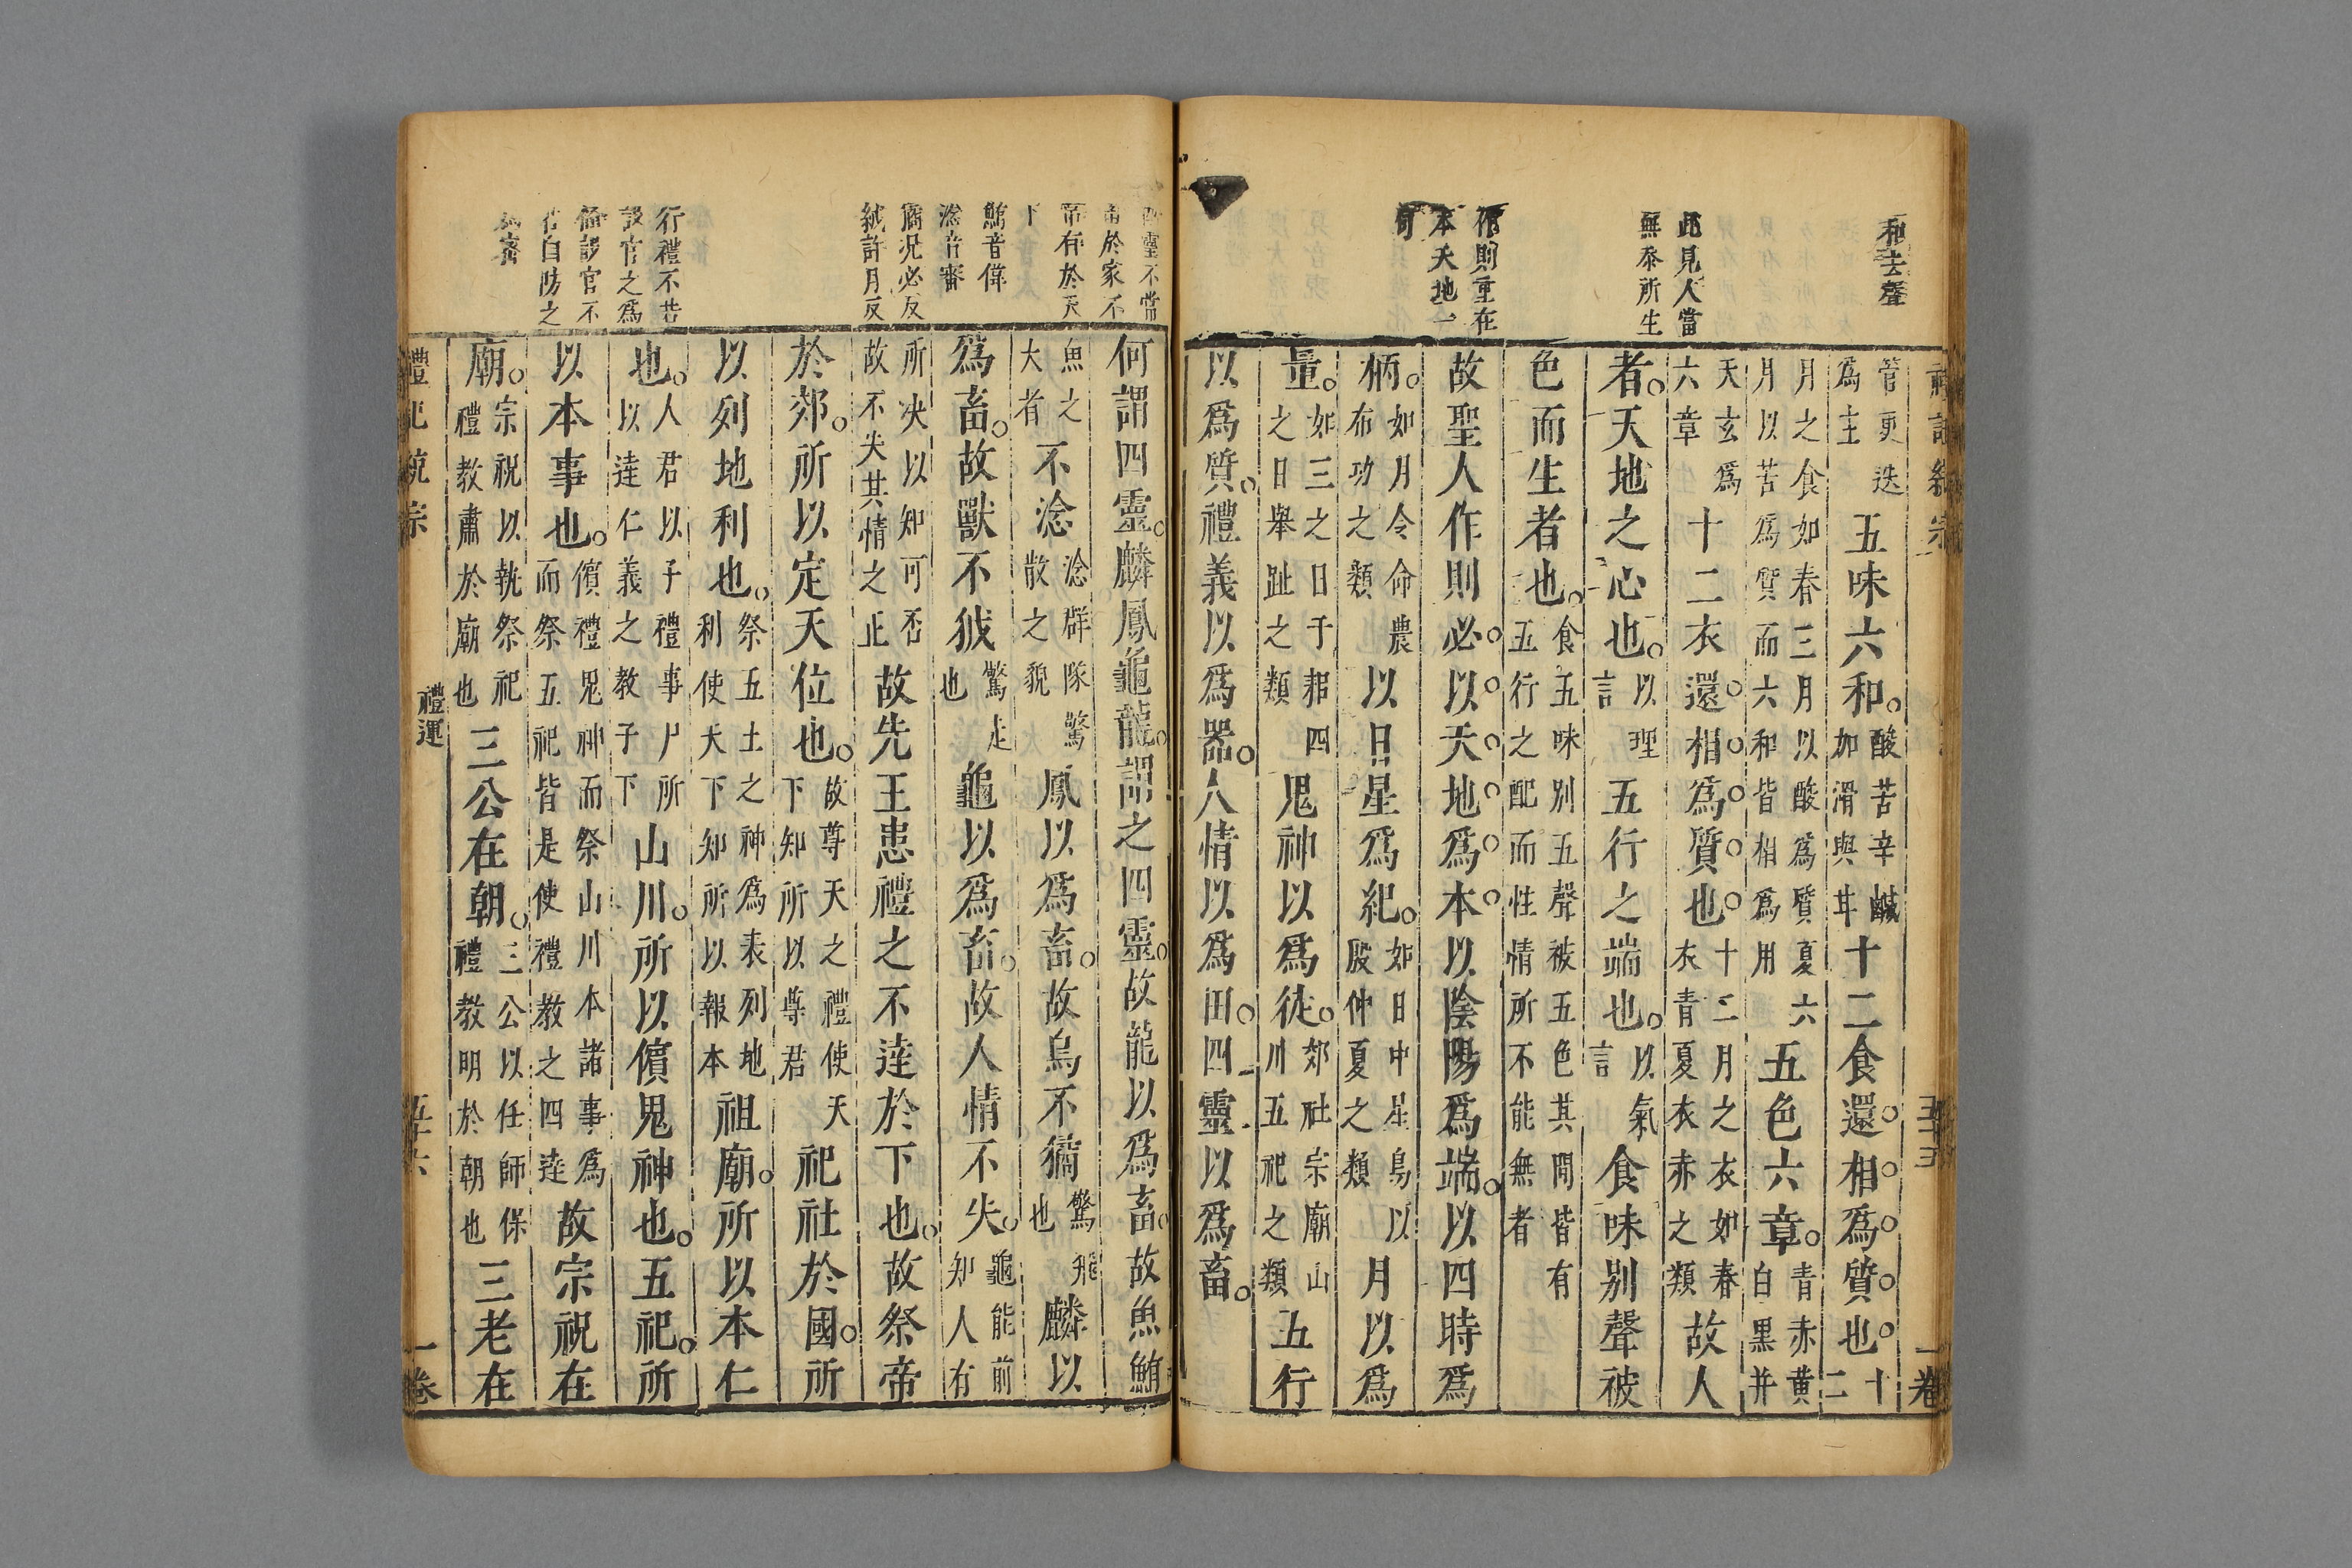 和去聲
此見人當
無忝所生
作則重在
本天地一
句
管更迭
爲主
五味六和
酸苦辛鹹
加滑與甘
十二食還相爲質也
十
二
月之食如春三月以酸爲質夏六
月以苦爲質而六和皆相爲用
五色六章
青赤黃
白黑并
天玄爲
六章
十二衣還相爲質也
十二月之衣如春
衣青夏衣赤之類
故人
者天地之心也
以理
言
五行之端也
以氣
言
食味别聲被
色而生者也
食五味別五聲被五色其間皆有
五行之配而性情所不能無者
故聖人作則必以天地爲本以陰陽爲端以四時爲
柄
如月令命農
布功之類
以日星爲紀
如日中星鳥以
殷仲夏之類
月以爲
量
如三之日于耜四
之日舉趾之類
鬼神以爲徒
郊社宗廟山
川五祀之類
五行
以爲質禮義以爲器人情以爲田四靈以爲畜
一卷
下
鮪音偉
淰音審
獝況必反
狘許月反
行禮不苦
設官之爲
備設官不
若自防之
爲密
何謂四靈麟鳳龜龍謂之四靈故龍以爲畜故魚鮪
魚之
大者
不淰
淰群隊驚
散之貌
鳳以爲畜故鳥不獝
驚飛
也
麟以
爲畜故獸不狘
驚走
也
龜以爲畜故人情不失
龜能前
知人有
所决以知可否
故不失其情之正
故先王患禮之不達於下也故祭帝
於郊所以定天位也
故尊天之禮使天
下知所以尊君
祀社於國所
以列地利也
祭五土之神爲表列地
利使天下知所以報本
祖廟所以本仁
也
人君以子禮事尸所
以達仁義之教子下
山川所以儐鬼神也五祀所
以本事也
儐禮鬼神而祭山川本諸事爲
而祭五祀皆是使禮教之四達
故宗祝在
廟
宗祝以執祭祀
禮教肅於廟也
三公在朝
三公以任師保
禮教明於朝也
三老在
禮運
一卷